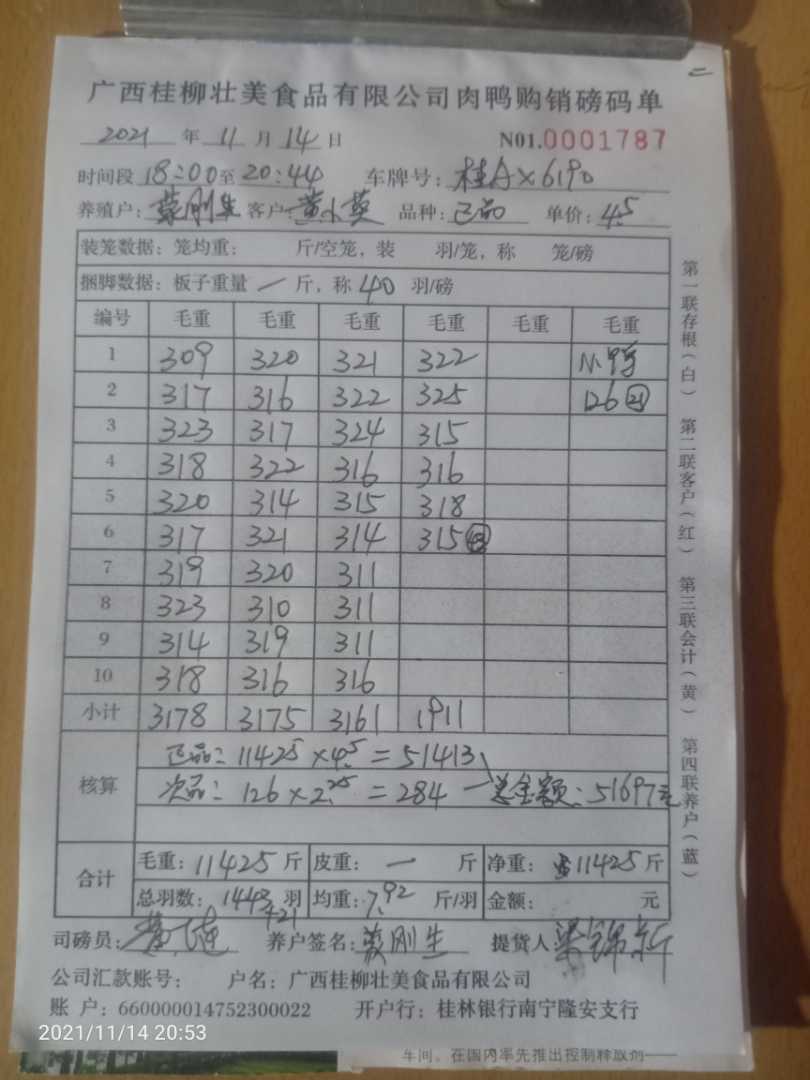 二
广西桂柳壮美食品有限公司肉鸭购销磅码单
2021 年 11 月 14 日 N01.0001787
时间段 18:00 至 20:44 车牌号: 桂A×6190
养殖户: 刚生 客户: 黄小英 品种: 正品 单价: 4.5
装笼数据: 笼均重: 斤/空笼, 装 羽/笼, 称 笼/磅
捆脚数据: 板子重量 一 斤, 称 40 羽/磅
编号 毛重 毛重 毛重 毛重 毛重 毛重
1 309 320 321 322 小鸭
2 317 316 322 325 126 21
3 323 317 324 315
4 318 322 316 316
5 320 314 315 318
6 317 321 314 315 43
7 319 320 311
8 323 310 311
9 314 319 311
10 318 316 316
小计 3178 3175 3161 1911
核算 正品: 11425×4.5=51413
次品: 126×2.25=284 一总金额: 51697元
合计 毛重: 11425 斤 皮重: 一 斤 净重: 11425 斤
总羽数: 1443 羽 均重: 7.92 斤/羽 金额: 元
+21
司磅员: 黄 养户签名: 刚生 提货人 梁锦新
公司汇款账号: 户名: 广西桂柳壮美食品有限公司
账 户: 660000014752300022 开户行: 桂林银行南宁隆安支行
第一联存根(白) 第二联客户(红) 第三联会计(黄) 第四联养户(蓝)
2021/11/14 20:53
车间。在国内率先推出控制释放剂——